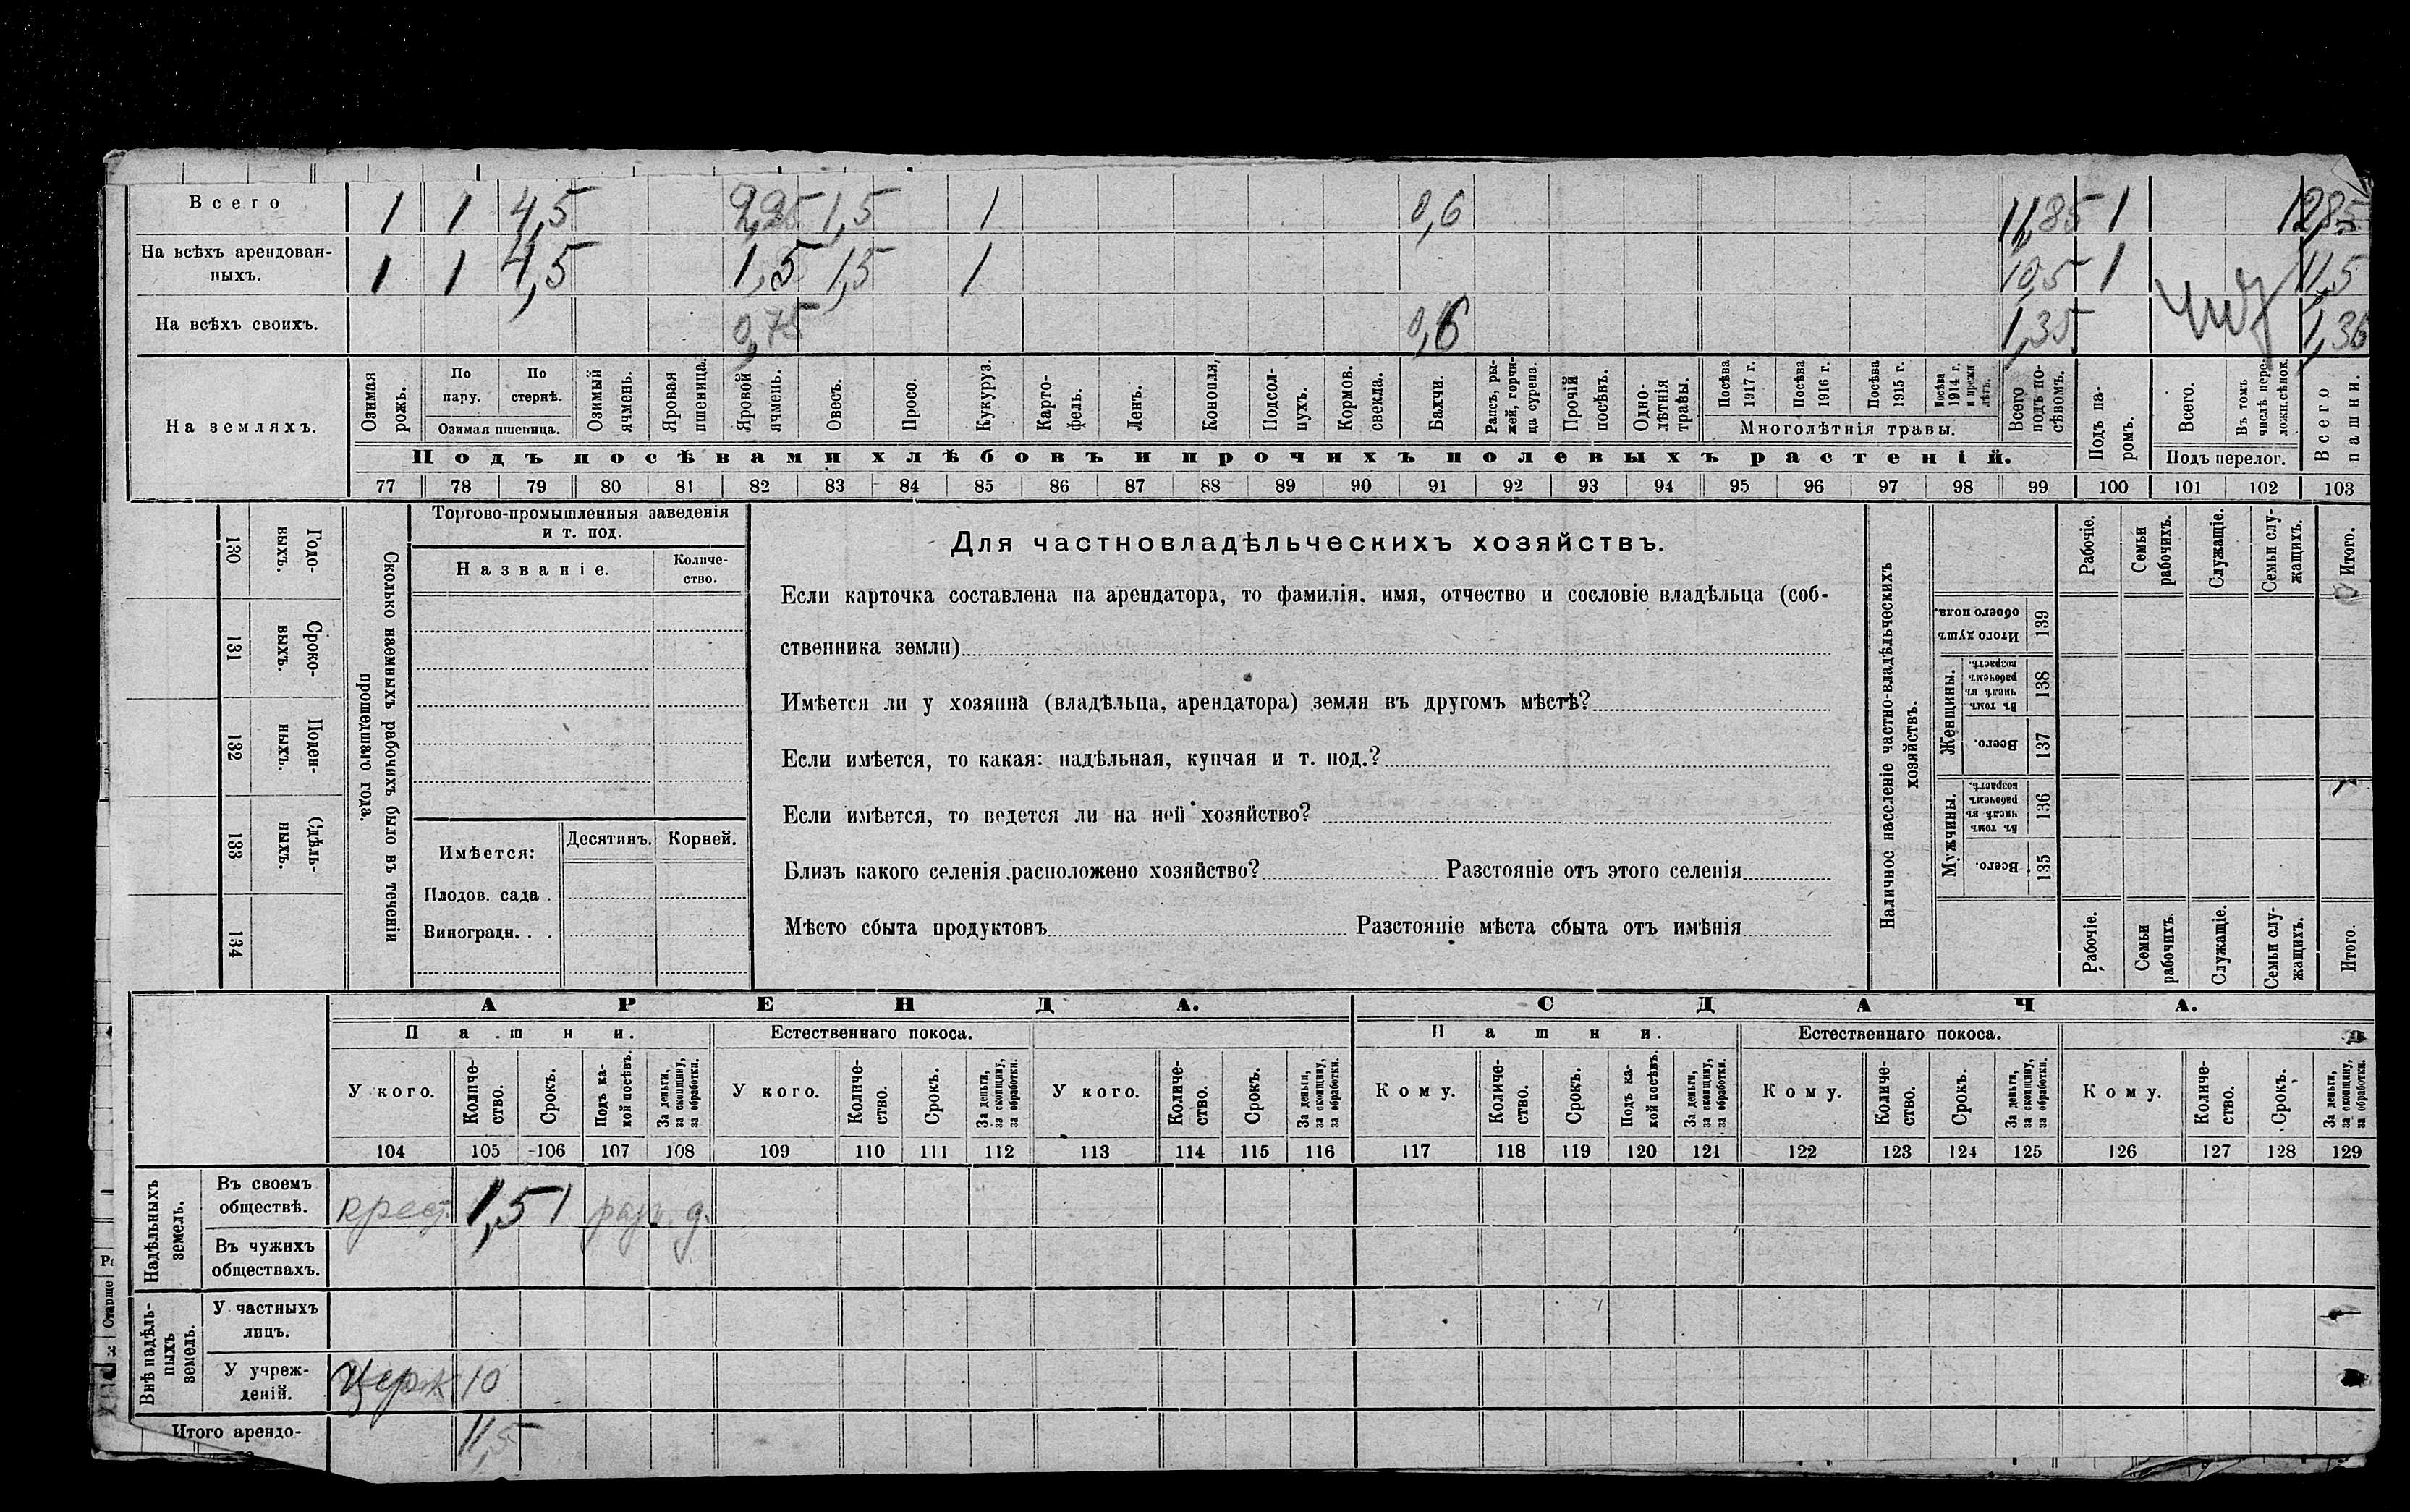 Всего 1 1 4,5 2,25 1,5 1 0,6 11,85 1 12,85
На всѣхъ арендован-
ныхъ. 1 1 4,5 1,5 1,5 1 10,5 1 11,5
На всѣхъ своихъ. 0,75 0,6 1,35 1,36
На земляхъ.
Озимая рожь.
По пару.
По стернѣ.
Озимая пшеница.
Озимый ячмень.
Яровая пшеница.
Яровой ячмень.
Овесъ.
Просо.
Кукуруз.
Карто-
фель.
Ленъ.
Конопля,
Подсол-
нухъ.
Кормов. свекла.
Бахчи.
Рапсъ, ры-
жей, горчи-
ца сурепа.
Прочій посѣвъ.
Одно-
лѣтнія травы.
Посѣва 1917 г.
Посѣва 1916 г.
Посѣва 1915 г.
Посѣва 1914 г. и прежн лѣтъ.
Многолѣтнія травы.
Всего подъ по-
сѣвомъ.
Подъ па-
ромъ.
Всего.
Въ томъ числѣ пере-
ложн.сѣнок.
Подъ перелог.
Всего пашни.
Подъ посѣвами хлѣбовъ и прочихъ полевыхъ растеній.
77 78 79 80 81 82 83 84 85 86 87 88 89 90 91 92 93 94 95 96 97 98 99 100 101 102 103
130 Годо-
выхъ.
131 Сроко-
выхъ.
132 Поден-
ныхъ.
133 Сдѣль-
ныхъ.
134
Сколько наемныхъ рабочихъ было въ теченіи
прошедшаго года.
Торгово-промышленныя заведенія
и т. под.
Названіе.
Количе-
ство.
Имѣется:
Десятинъ. Корней.
Плодов. сада .
Виноградн. . .
Для частновладѣльческихъ хозяйствъ.
Если карточка составлена на арендатора, то фамилія, имя, отчество и сословіе владѣльца (соб-
ственника земли)
Имѣется ли у хозяина (владѣльца, арендатора) земля въ другомъ мѣстѣ?
Если имѣется, то какая: надѣльная, купчая и т. под.?
Если имѣется, то ведется ли на ней хозяйство?
Близъ какого селенія расположено хозяйство? Разстояніе отъ этого селенія
Мѣсто сбыта продуктовъ Разстояніе мѣста сбыта отъ имѣнія
Наличное населеніе частно-владѣльческихъ
хозяйствъ.
Рабочіе.
Семьи рабочихъ.
Служащіе.
Семьи слу-
жащихъ.
Итого.
Итого душъ обоего пола. 139
Женщины.
Въ томъ числѣ въ рабочемъ возрастѣ. 138
Всего. 137
Мужчины.
Въ томъ числѣ въ рабочемъ возрастѣ. 136
Всего. 135
Рабочіе.
Семьи рабочихъ.
Служащіе.
Семьи слу-
жащихъ.
Итого.
АРЕНДА. СДАЧА.
Пашни. Естественнаго покоса. Пашни. Естественнаго покоса.
У кого.
Количе-
ство.
Срокъ.
Подъ ка-
кой посѣвъ.
За деньги, за скопщину, за обработки.
У кого.
Количе-
ство.
Срокъ.
За деньги, за скопщину, за обработки.
У кого.
Количе-
ство.
Срокъ.
За деньги, за скопщину, за обработки.
Кому.
Количе-
ство.
Срокъ.
Подъ ка-
кой посѣвъ.
За деньги, за скопщину, за обработки.
Кому.
Количе-
ство.
Срокъ.
За деньги, за скопщину, за обработки.
Кому.
Количе-
ство.
Срокъ.
За деньги, за скопщину, за обработки.
104 105 106 107 108 109 110 111 112 113 114 115 116 117 118 119 120 121 122 123 124 125 126 127 128 129
Надѣльныхъ земель.
Въ своемъ
обществѣ. крест. 1,5 1 разн. д.
Въ чужихъ
обществахъ.
Внѣ надѣль-
ныхъ земель.
У частныхъ
лицъ.
У учреж-
деній. Церк. 10
Итого арендо- 11,5
Старше